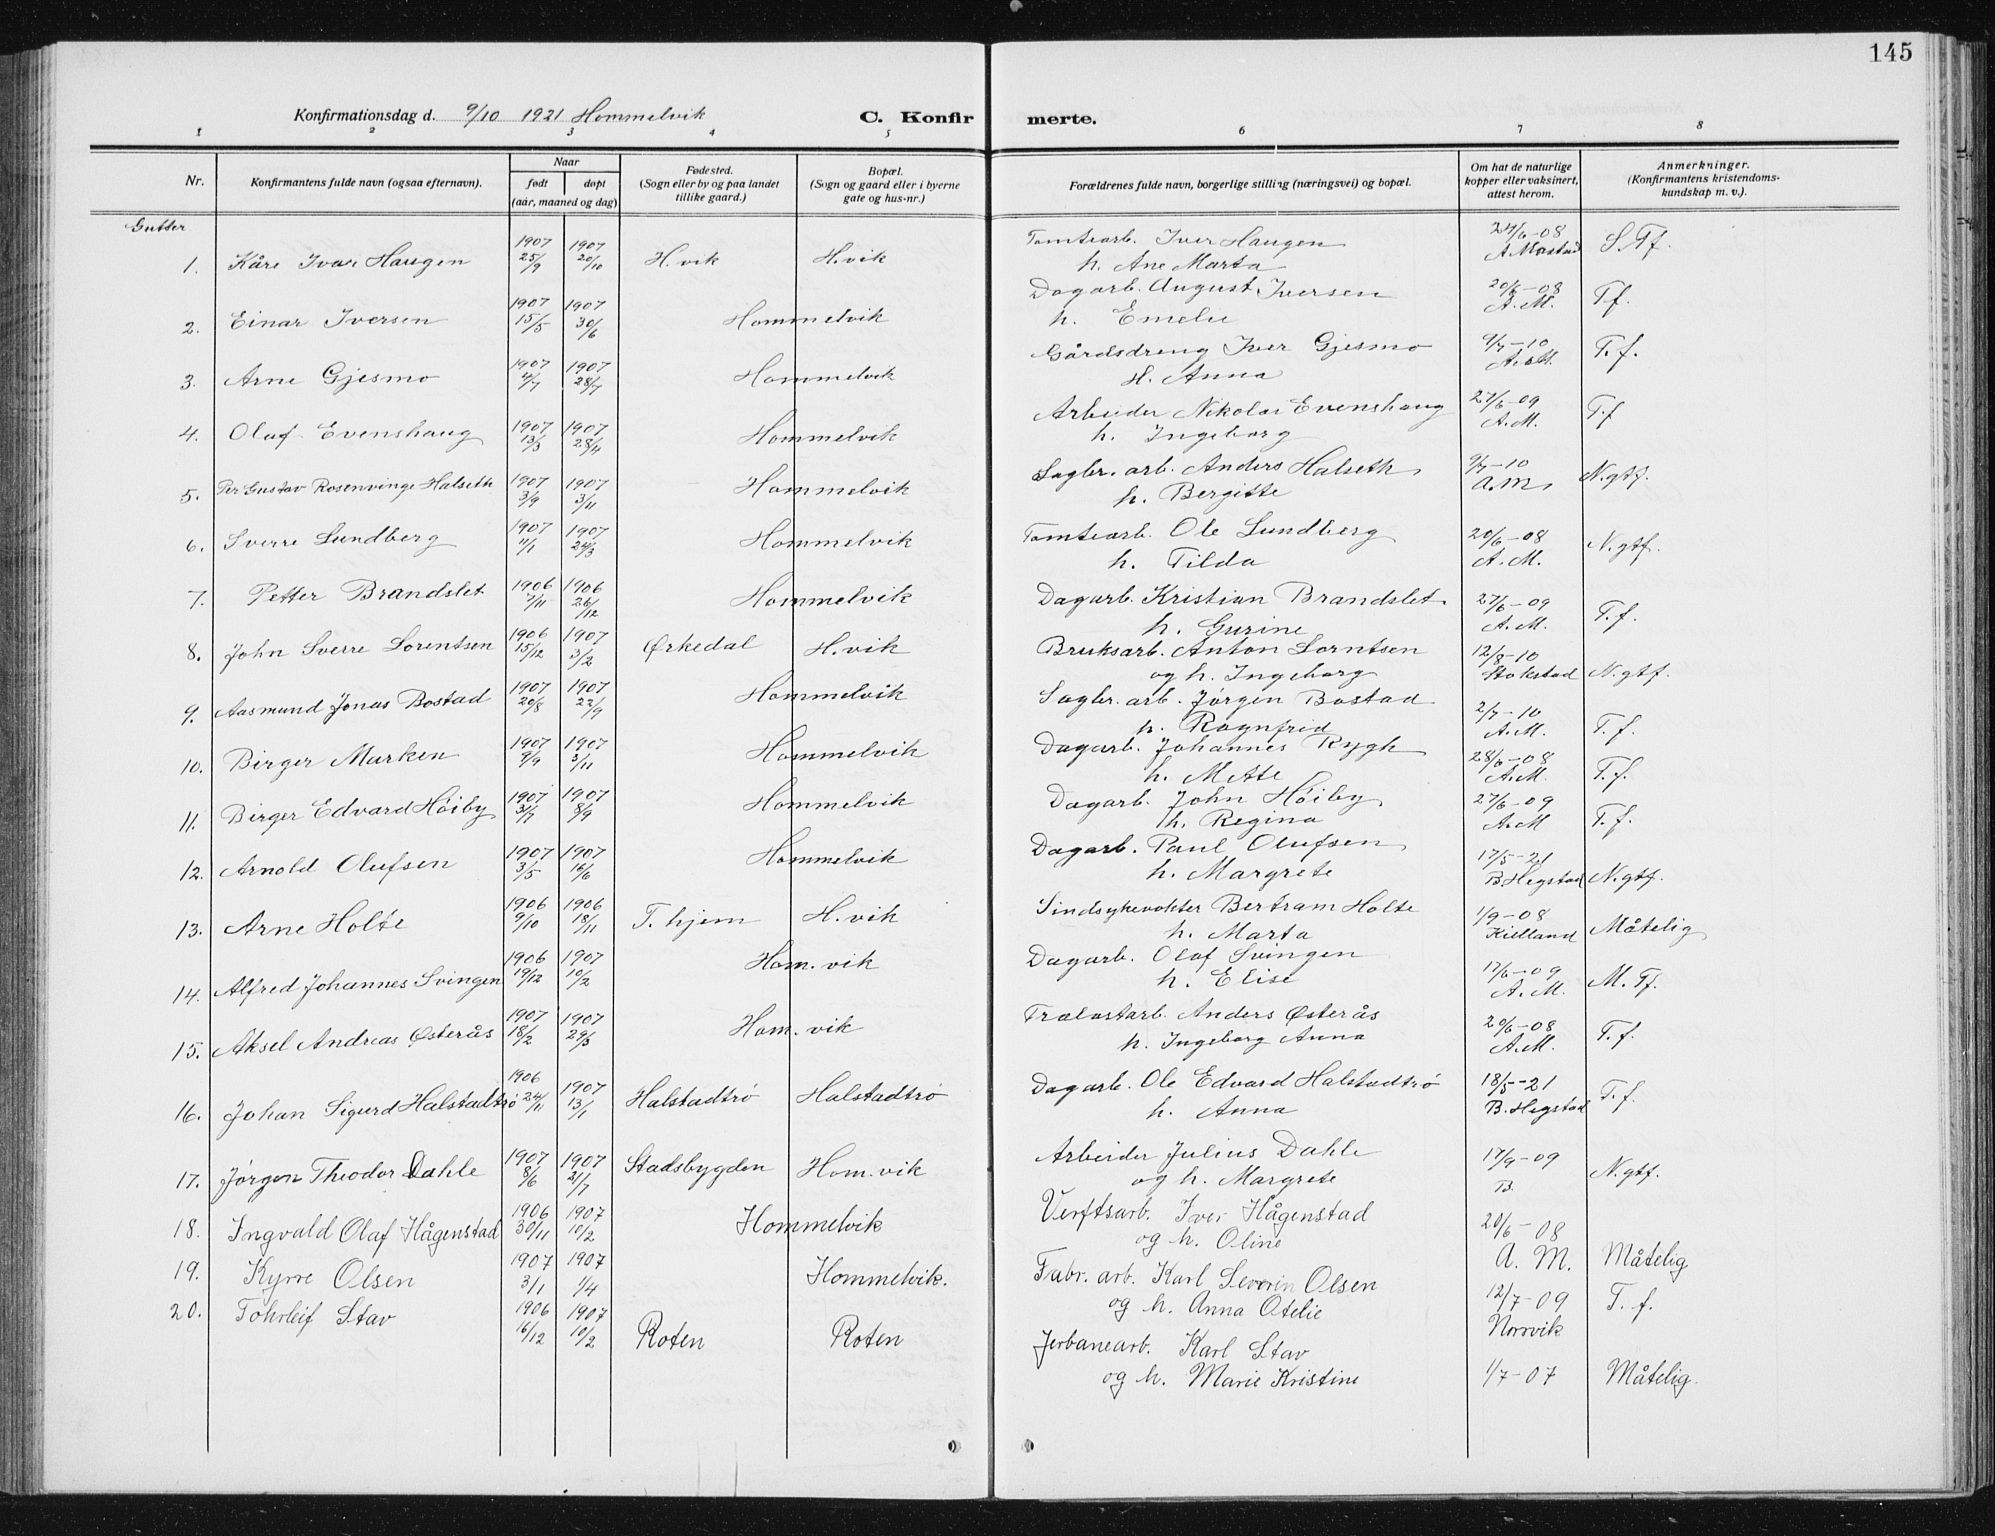 145
Konfirmationsdag d. 9/10 1921 Hommelvik C. Konfir merte.
1 2 3 4 5 6 7 8
Nr. Konfirmantens fulde navn (ogsaa efternavn). Naar født døpt (aar, maaned og dag) Fødested. (Sogn eller by og paa landet tillike gaard.) Bopæl. (Sogn og gaard eller i byerne gate og hus-nr.) Forældrenes fulde navn, borgerlige stilling (næringsvei) og bopæl. Om hat de naturlige kopper eller vaksinert, attest herom. Anmerkninger. (Konfirmantens kristendoms-kundskap m. v.).
Gutter
1. Kåre Ivar Haugen 1907 25/9 1907 20/10 H. vik H. vik Tomtearb. Iver Haugen h. Ane Marta 24/6-08 A Mostad S. Tf.
2. Einar Iversen 1907 15/5 1907 30/6 Hommelvik Dagarb. August Iversen h. Emelie 20/6-08 A. M. Tf.
3. Arne Gjesmo 1907 4/7 1907 28/7 Hommelvik Gårdsdreng Iver Gjesmo H. Anna 9/7-10 A. M. T. f.
4. Olaf Evenshaug 1907 13/3 1907 28/4 Hommelvik Arbeider Nikolai Evenshaug h. Ingeborg 27/6-09 A. M. T. f
5. Per Gustav Rosenvinge Halseth 1907 3/9 1907 3/11 Hommelvik Sagbr. arb. Anders Halseth h. Bergitte 9/7-10 A. M. N. gtf.
6. Sverre Lundberg 1907 11/1 1907 24/3 Hommelvik Tomtearb. Ole Lundberg h. Tilda 20/6-08 A. M. N. gtf.
7. Petter Brandslet 1906 7/11 1906 26/12 Hommelvik Dagarb. Kristian Brandslet h. Gurine 27/6-09 A. M. T. f.
8. John Sverre Lorentsen 1906 15/12 1907 3/2 Ørkedal H. vik Bruksarb. Anton Lorntsen og h. Ingeborg 12/8-10 Stokstad N. gtf.
9. Aasmund Jonas Bostad 1907 20/8 1907 22/9 Hommelvik Sagbr. arb. Jørgen Bostad h. Ragnfrid 2/7-10 A. M. T. f.
10. Birger Marken 1907 9/9 1907 3/11 Hommelvik Dagarb. Johannes Rygh h. Mette 28/6-08 A. M. T. f.
11. Birger Edvard Høiby 1907 3/7 1907 8/9 Hommelvik Dagarb. John Høiby h. Regina 27/6-09 A. M T. f.
12. Arnold Olufsen 1907 3/5 1907 16/6 Hommelvik Dagarb. Paul Olufsen h. Margrete 17/5-21 B Hegstad N. gtf.
13. Arne Holte 1906 9/10 1906 18/11 T. hjem H. vik Sindsykevokter Bertram Holte h. Marta 1/9-08 Kielland Måtelig
14. Alfred Johannes Svingen 1906 19/12 1907 10/2 Hom. vik Dagarb. Olaf Svingen h. Elise 17/6-09 A. M. M. Tf.
15. Aksel Andreas Østerås 1907 18/2 1907 29/3 Hom. vik Trælastarb. Anders Østerås h. Ingeborg Anna 20/6-08 A. M. T. f.
16. Johan Sigurd Halstadtrø 1906 24/11 1907 13/1 Halstadtrø Halstadtrø Dagarb. Ole Edvard Halstadtrø h. Anna 18/5-21 B. Hegstad T. f.
17. Jørgen Theodor Dahle 1907 8/6 1907 21/7 Stadsbygden Hom. vik Arbeider Julius Dahle og h. Margrete 17/9-09 B. N. gtf.
18. Ingvald Olaf Hågenstad 1906 30/11 1907 10/2 Hommelvik Verftsarb. Iver Hågenstad og h. Oline 20/6-08 A. M. Måtelig
19. Kyrre Olsen 1907 3/1 1907 1/4 Hommelvik. Fabr. arb. Karl Severin Olsen og h. Anna Otelie 12/7-09 Norvik T. f.
20. Tohrleif Stav 1906 16/12 1907 10/2 Roten Roten Jerbanearb. Karl Stav og h. Marie Kristine 1/7-07 Måtelig.